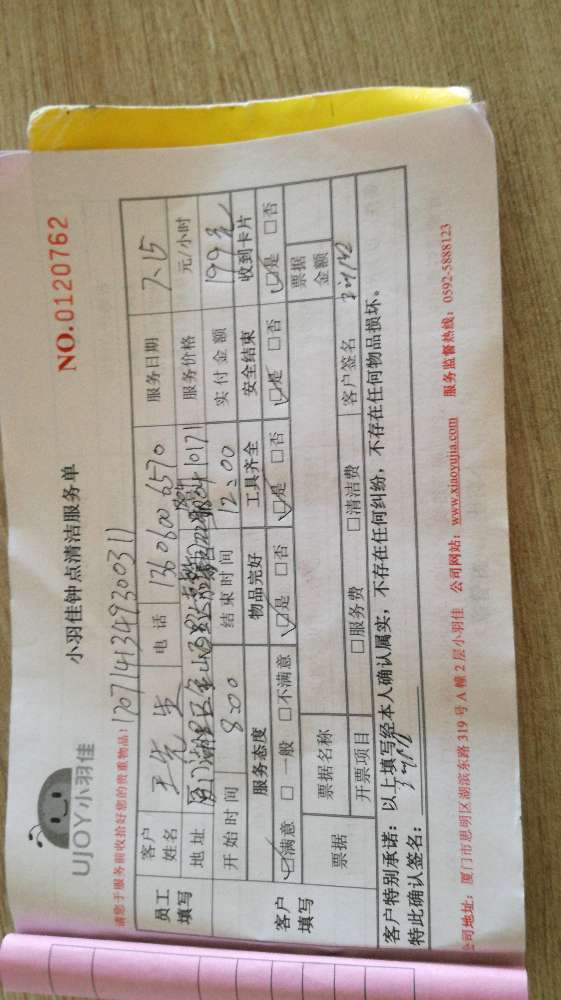 UJOY小羽佳
小羽佳钟点清洁服务单
NO.0120762
请您于服务前收拾好您的贵重物品! 1707141349300311
员工填写
客户姓名 王先生 电话 136 0600 6570 服务日期 7.15
地址 服务价格 元/小时
开始时间 8:00 结束时间 12:00 实付金额 199元
客户填写
服务态度 物品完好 工具齐全 安全结束 收到卡片
☑满意 □一般 □不满意 ☑是 □否 ☑是 □否 ☑是 □否 ☑是 □否
票据 票据名称 票据金额
开票项目 □服务费 □清洁费 客户签名
客户特别承诺：以上填写经本人确认属实，不存在任何纠纷，不存在任何物品损坏。
特此确认签名：
公司地址：厦门市思明区湖滨东路319号A幢2层小羽佳 公司网站：www.xiaoyujia.com 服务监督热线：0592-5888123